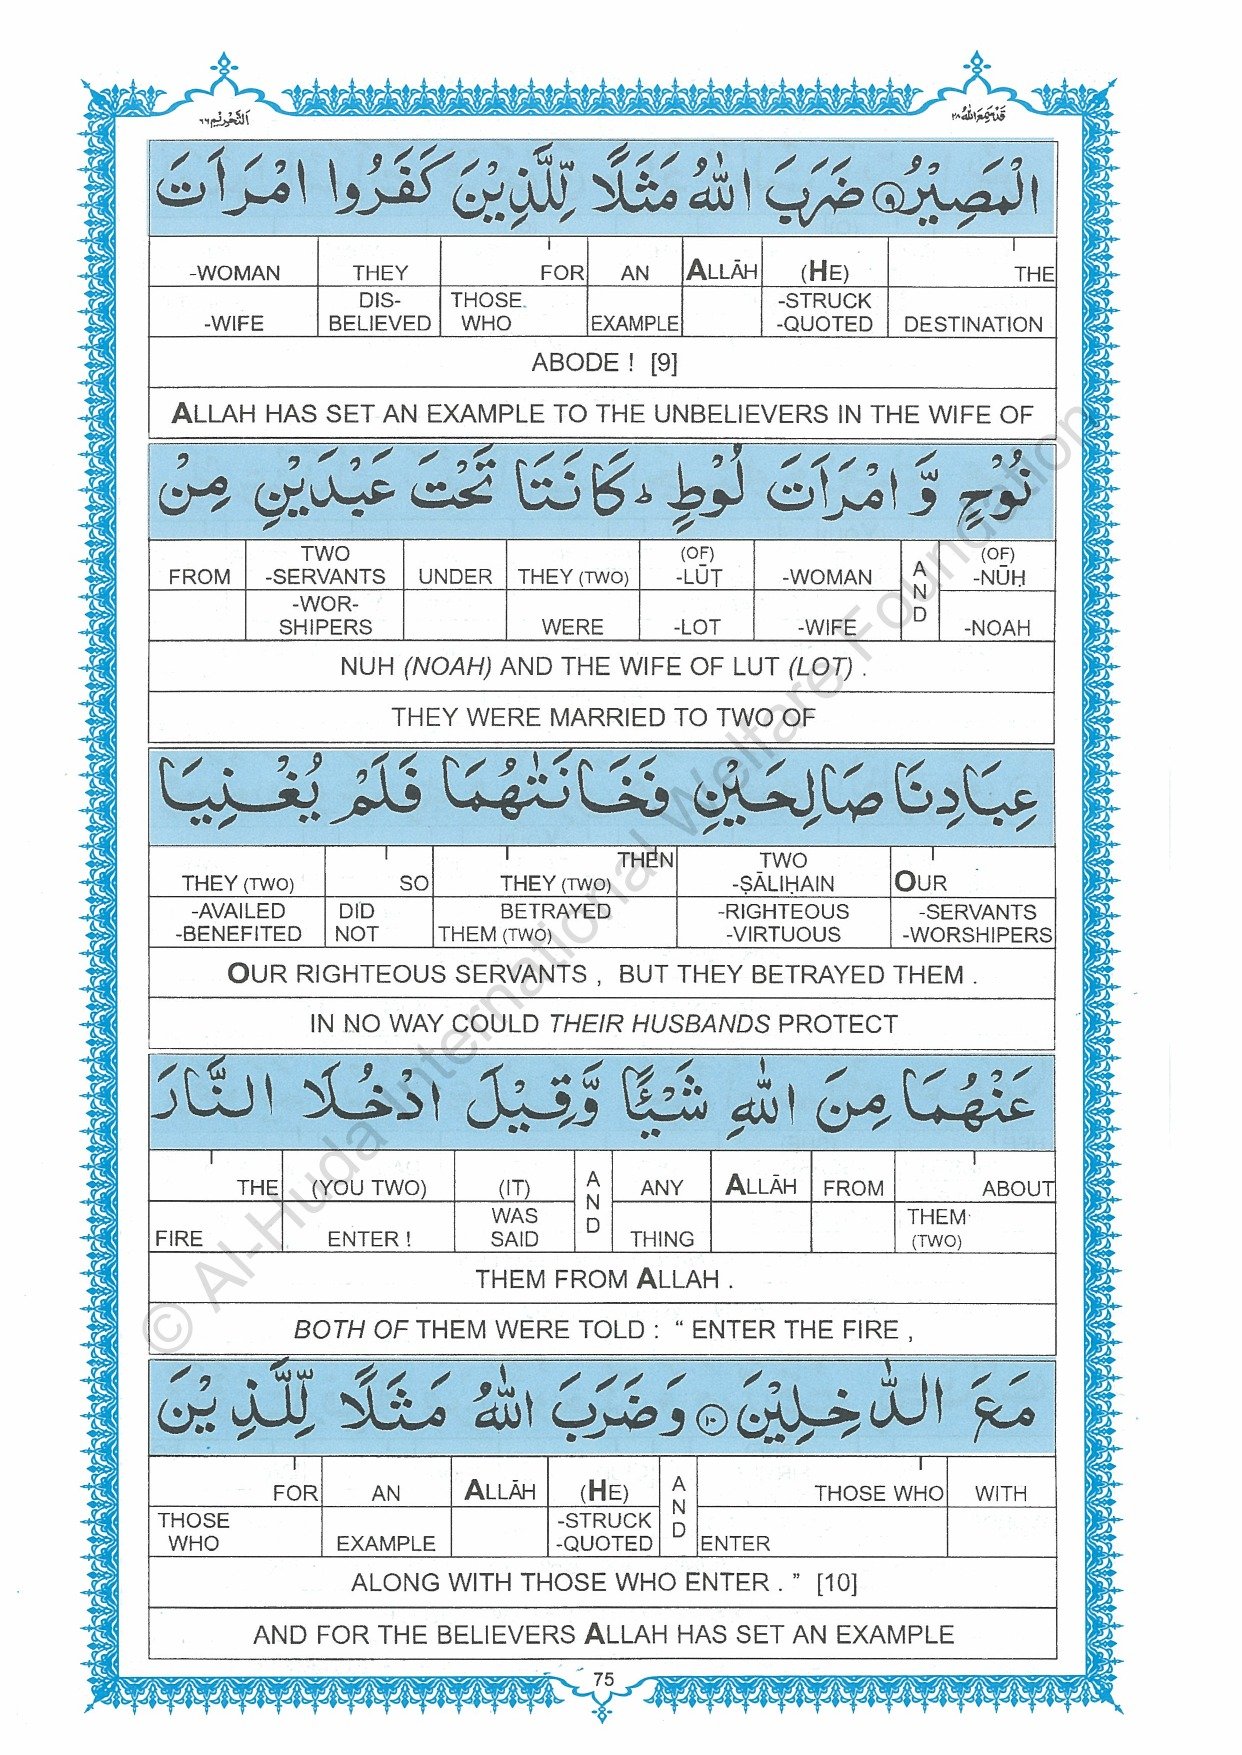 اَلتَّحْرِيْم ٦٦
قَدْ سَمِعَ اللّٰهُ ٢٨
الْمَصِيْرُ ٩ ضَرَبَ اللّٰهُ مَثَلًا لِّلَّذِيْنَ كَفَرُوا امْرَاَتَ
-WOMAN THEY FOR AN ALLĀH (HE) THE
-WIFE DIS- BELIEVED THOSE WHO EXAMPLE -STRUCK -QUOTED DESTINATION
ABODE ! [9]
ALLAH HAS SET AN EXAMPLE TO THE UNBELIEVERS IN THE WIFE OF
نُوْحٍ وَّ امْرَاَتَ لُوْطٍ ؕ كَانَتَا تَحْتَ عَبْدَيْنِ مِنْ
FROM TWO -SERVANTS UNDER THEY (TWO) (OF) -LŪṬ -WOMAN AND (OF) -NŪḤ
-WOR- SHIPERS WERE -LOT -WIFE -NOAH
NUH (NOAH) AND THE WIFE OF LUT (LOT) .
THEY WERE MARRIED TO TWO OF
عِبَادِنَا صَالِحَيْنِ فَخَانَتٰهُمَا فَلَمْ يُغْنِيَا
THEY (TWO) SO THEN THEY (TWO) TWO -ṢĀLIḤAIN OUR
-AVAILED -BENEFITED DID NOT BETRAYED THEM (TWO) -RIGHTEOUS -VIRTUOUS -SERVANTS -WORSHIPERS
OUR RIGHTEOUS SERVANTS , BUT THEY BETRAYED THEM .
IN NO WAY COULD THEIR HUSBANDS PROTECT
عَنْهُمَا مِنَ اللّٰهِ شَيْـًٔا وَّقِيْلَ ادْخُلَا النَّارَ
THE (YOU TWO) (IT) AND ANY ALLĀH FROM ABOUT
FIRE ENTER ! WAS SAID THING THEM (TWO)
THEM FROM ALLAH .
BOTH OF THEM WERE TOLD : “ ENTER THE FIRE ,
مَعَ الدّٰخِلِيْنَ ١٠ وَضَرَبَ اللّٰهُ مَثَلًا لِّلَّذِيْنَ
FOR AN ALLĀH (HE) AND THOSE WHO WITH
THOSE WHO EXAMPLE -STRUCK -QUOTED ENTER
ALONG WITH THOSE WHO ENTER . ” [10]
AND FOR THE BELIEVERS ALLAH HAS SET AN EXAMPLE
75
© Al-Huda International Welfare Foundation